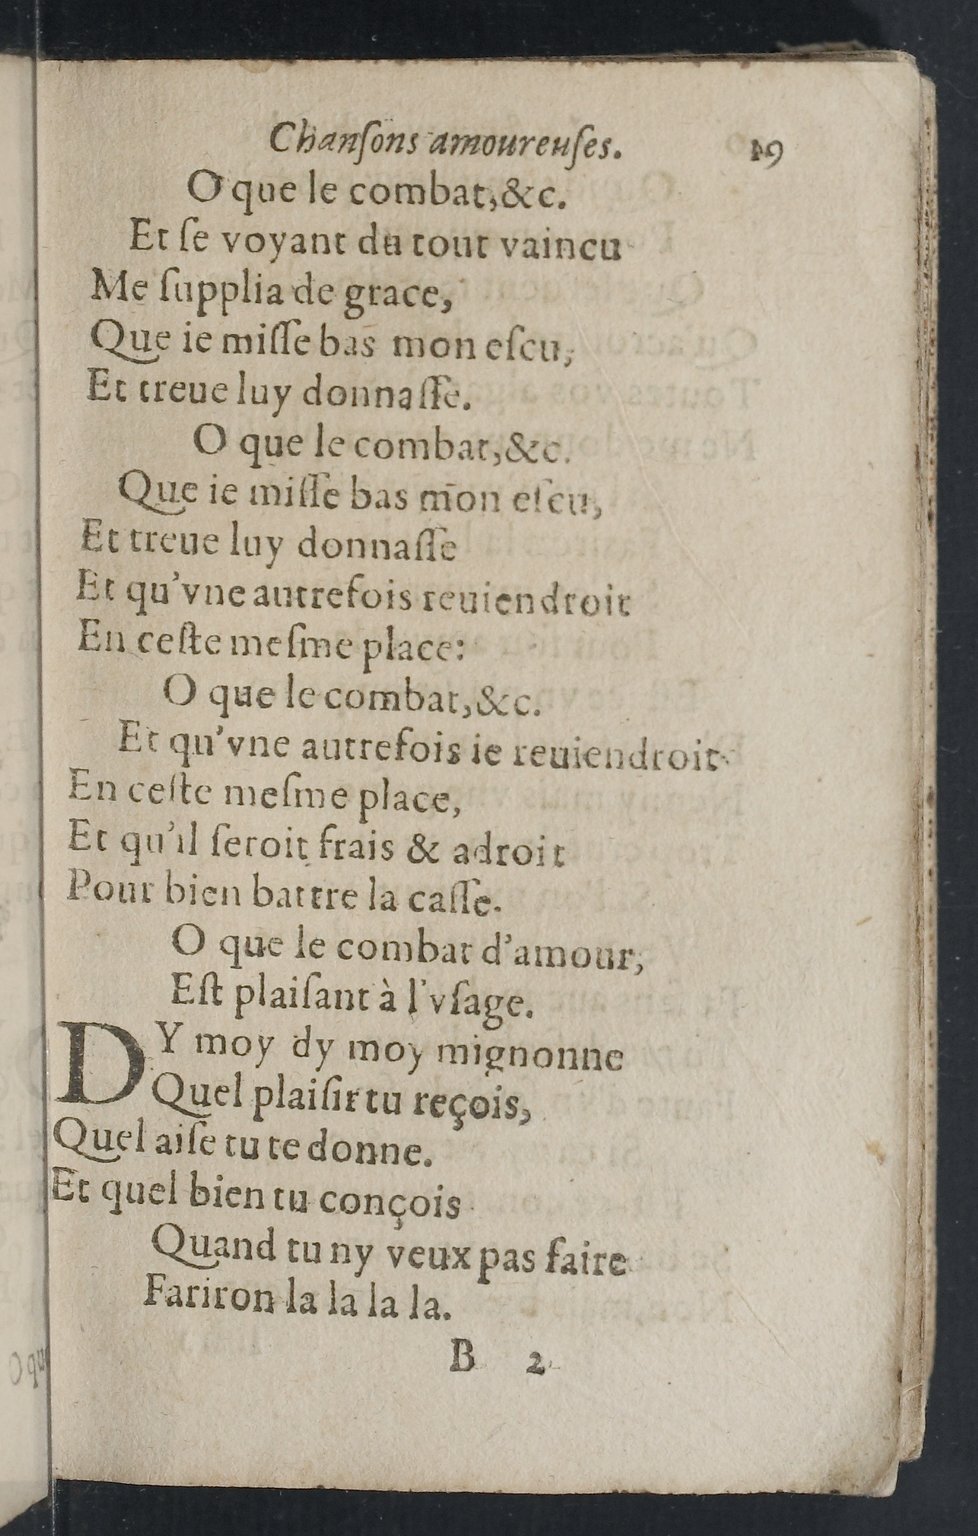 Chanſons amoureuſes. 19
O que le combat, &c.
Et ſe voyant du tout vaincu
Me ſupplia de grace,
Que ie miſſe bas mon eſcu,
Et treue luy donnaſſe.
O que le combat, &c.
Que ie miſſe bas mon eſcu,
Et treue luy donnaſſe
Et qu'vne autrefois reuiendroit
En ceſte meſme place:
O que le combat, &c.
Et qu'vne autrefois ie reuiendroit
En ceſte meſme place,
Et qu'il ſeroit frais & adroit
Pour bien battre la caſſe.
O que le combat d'amour,
Eſt plaiſant à l'vſage.
DY moy dy moy mignonne
Quel plaiſir tu reçois,
Quel aiſe tu te donne.
Et quel bien tu conçois
Quand tu ny veux pas faire
Fariron la la la la.
B 2
O que